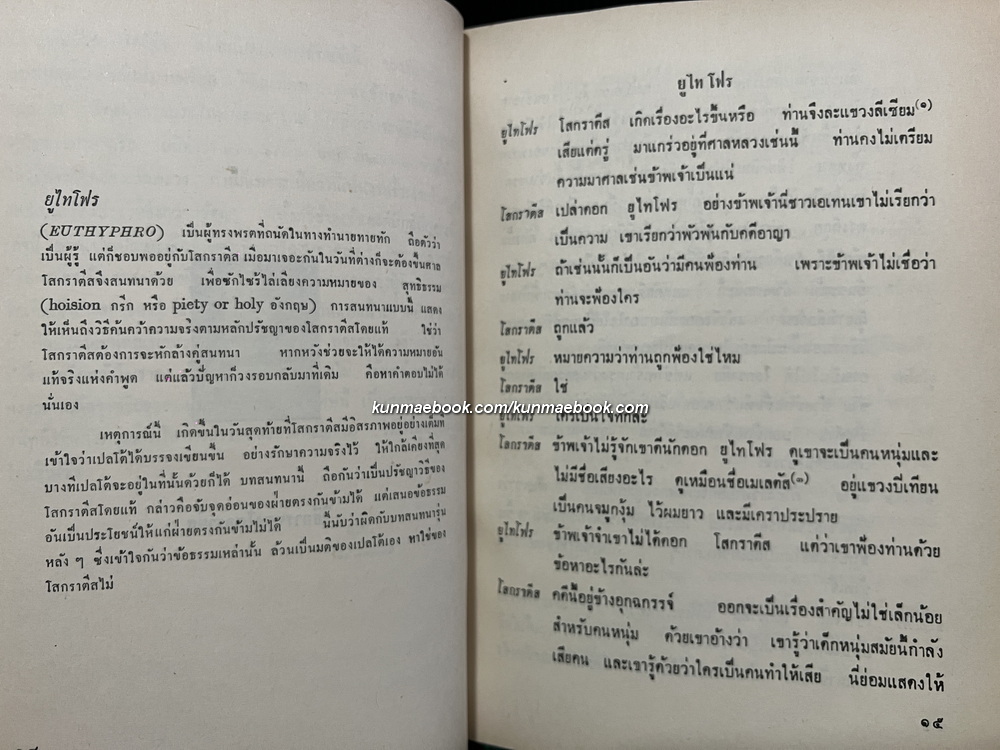 ยูไทโฟร
(EUTHYPHRO) เป็นผู้ทรงพรตที่ถนัดในทางทำนายทายทัก ถือตัวว่า
เป็นผู้รู้ แต่ก็ชอบพออยู่กับโสกราตีส เมื่อมาเจอะกันในวันที่ต่างก็จะต้องขึ้นศาล
โสกราตีสจึงสนทนาด้วย เพื่อซักไซร้ไล่เลียงความหมายของ สุทธิธรรม
(hoision กรีก หรือ piety or holy อังกฤษ) การสนทนาแบบนี้ แสดง
ให้เห็นถึงวิธีค้นคว้าความจริงตามหลักปรัชญาของโสกราตีสโดยแท้ ใช่ว่า
โสกราตีสต้องการจะหักล้างคู่สนทนา หากหวังช่วยจะให้ได้ความหมายอัน
แท้จริงแห่งคำพูด แต่แล้วปัญหาก็วงรอบกลับมาที่เดิม คือหาคำตอบไม่ได้
นั่นเอง
เหตุการณ์นี้ เกิดขึ้นในวันสุดท้ายที่โสกราตีสมีอิสรภาพอยู่อย่างเต็มที่
เข้าใจว่าเปลโต้ได้บรรจงเขียนขึ้น อย่างรักษาความจริงไว้ ให้ใกล้เคียงที่สุด
บางทีเปลโต้จะอยู่ในที่นั้นด้วยก็ได้ บทสนทนานี้ ถือกันว่าเป็นปรัชญาวิธีของ
โสกราตีสโดยแท้ กล่าวคือจับจุดอ่อนของฝ่ายตรงกันข้ามได้ แต่เสนอข้อธรรม
อันเป็นประโยชน์ให้แก่ฝ่ายตรงกันข้ามไม่ได้ นี้นับว่าผิดกับบทสนทนารุ่น
หลัง ๆ ซึ่งเข้าใจกันว่าข้อธรรมเหล่านั้น ล้วนเป็นมติของเปลโต้เอง หาใช่ของ
โสกราตีสไม่
ยูไทโฟร
ยูไทโฟร โสกราตีส เกิดเรื่องอะไรขึ้นหรือ ท่านจึงละแขวงลีเซียม(๑)
เสียแต่ครู่ มาแกร่วอยู่ที่ศาลหลวงเช่นนี้ ท่านคงไม่เตรียม
ความมาศาลเช่นข้าพเจ้าเป็นแน่
โสกราตีส เปล่าดอก ยูไทโฟร อย่างข้าพเจ้านี่ชาวเอเทนเขาไม่เรียกว่า
เป็นความ เขาเรียกว่าพัวพันกับคดีอาญา
ยูไทโฟร ถ้าเช่นนั้นก็เป็นอันว่ามีคนฟ้องท่าน เพราะข้าพเจ้าไม่เชื่อว่า
ท่านจะฟ้องใคร
โสกราตีส ถูกแล้ว
ยูไทโฟร หมายความว่าท่านถูกฟ้องใช่ไหม
โสกราตีส ใช่
kunmaebook.com/kunmaebook.com
ยูไทโฟร ใครเป็นโจทก์ล่ะ
โสกราตีส ข้าพเจ้าไม่รู้จักเขาดีนักดอก ยูไทโฟร ดูเขาจะเป็นคนหนุ่มและ
ไม่มีชื่อเสียงอะไร ดูเหมือนชื่อเมเลตัส(๓) อยู่แขวงบี่เทียน
เป็นคนจมูกงุ้ม ไว้ผมยาว และมีเคราประปราย
ยูไทโฟร ข้าพเจ้าจำเขาไม่ได้ดอก โสกราตีส แต่ว่าเขาฟ้องท่านด้วย
ข้อหาอะไรกันล่ะ
โสกราตีส คดีนี้อยู่ข้างอุกฉกรรจ์ ออกจะเป็นเรื่องสำคัญไม่ใช่เล็กน้อย
สำหรับคนหนุ่ม ด้วยเขาอ้างว่า เขารู้ว่าเด็กหนุ่มสมัยนี้กำลัง
เสียคน และเขารู้ด้วยว่าใครเป็นคนทำให้เสีย นี่ย่อมแสดงให้
๑๕